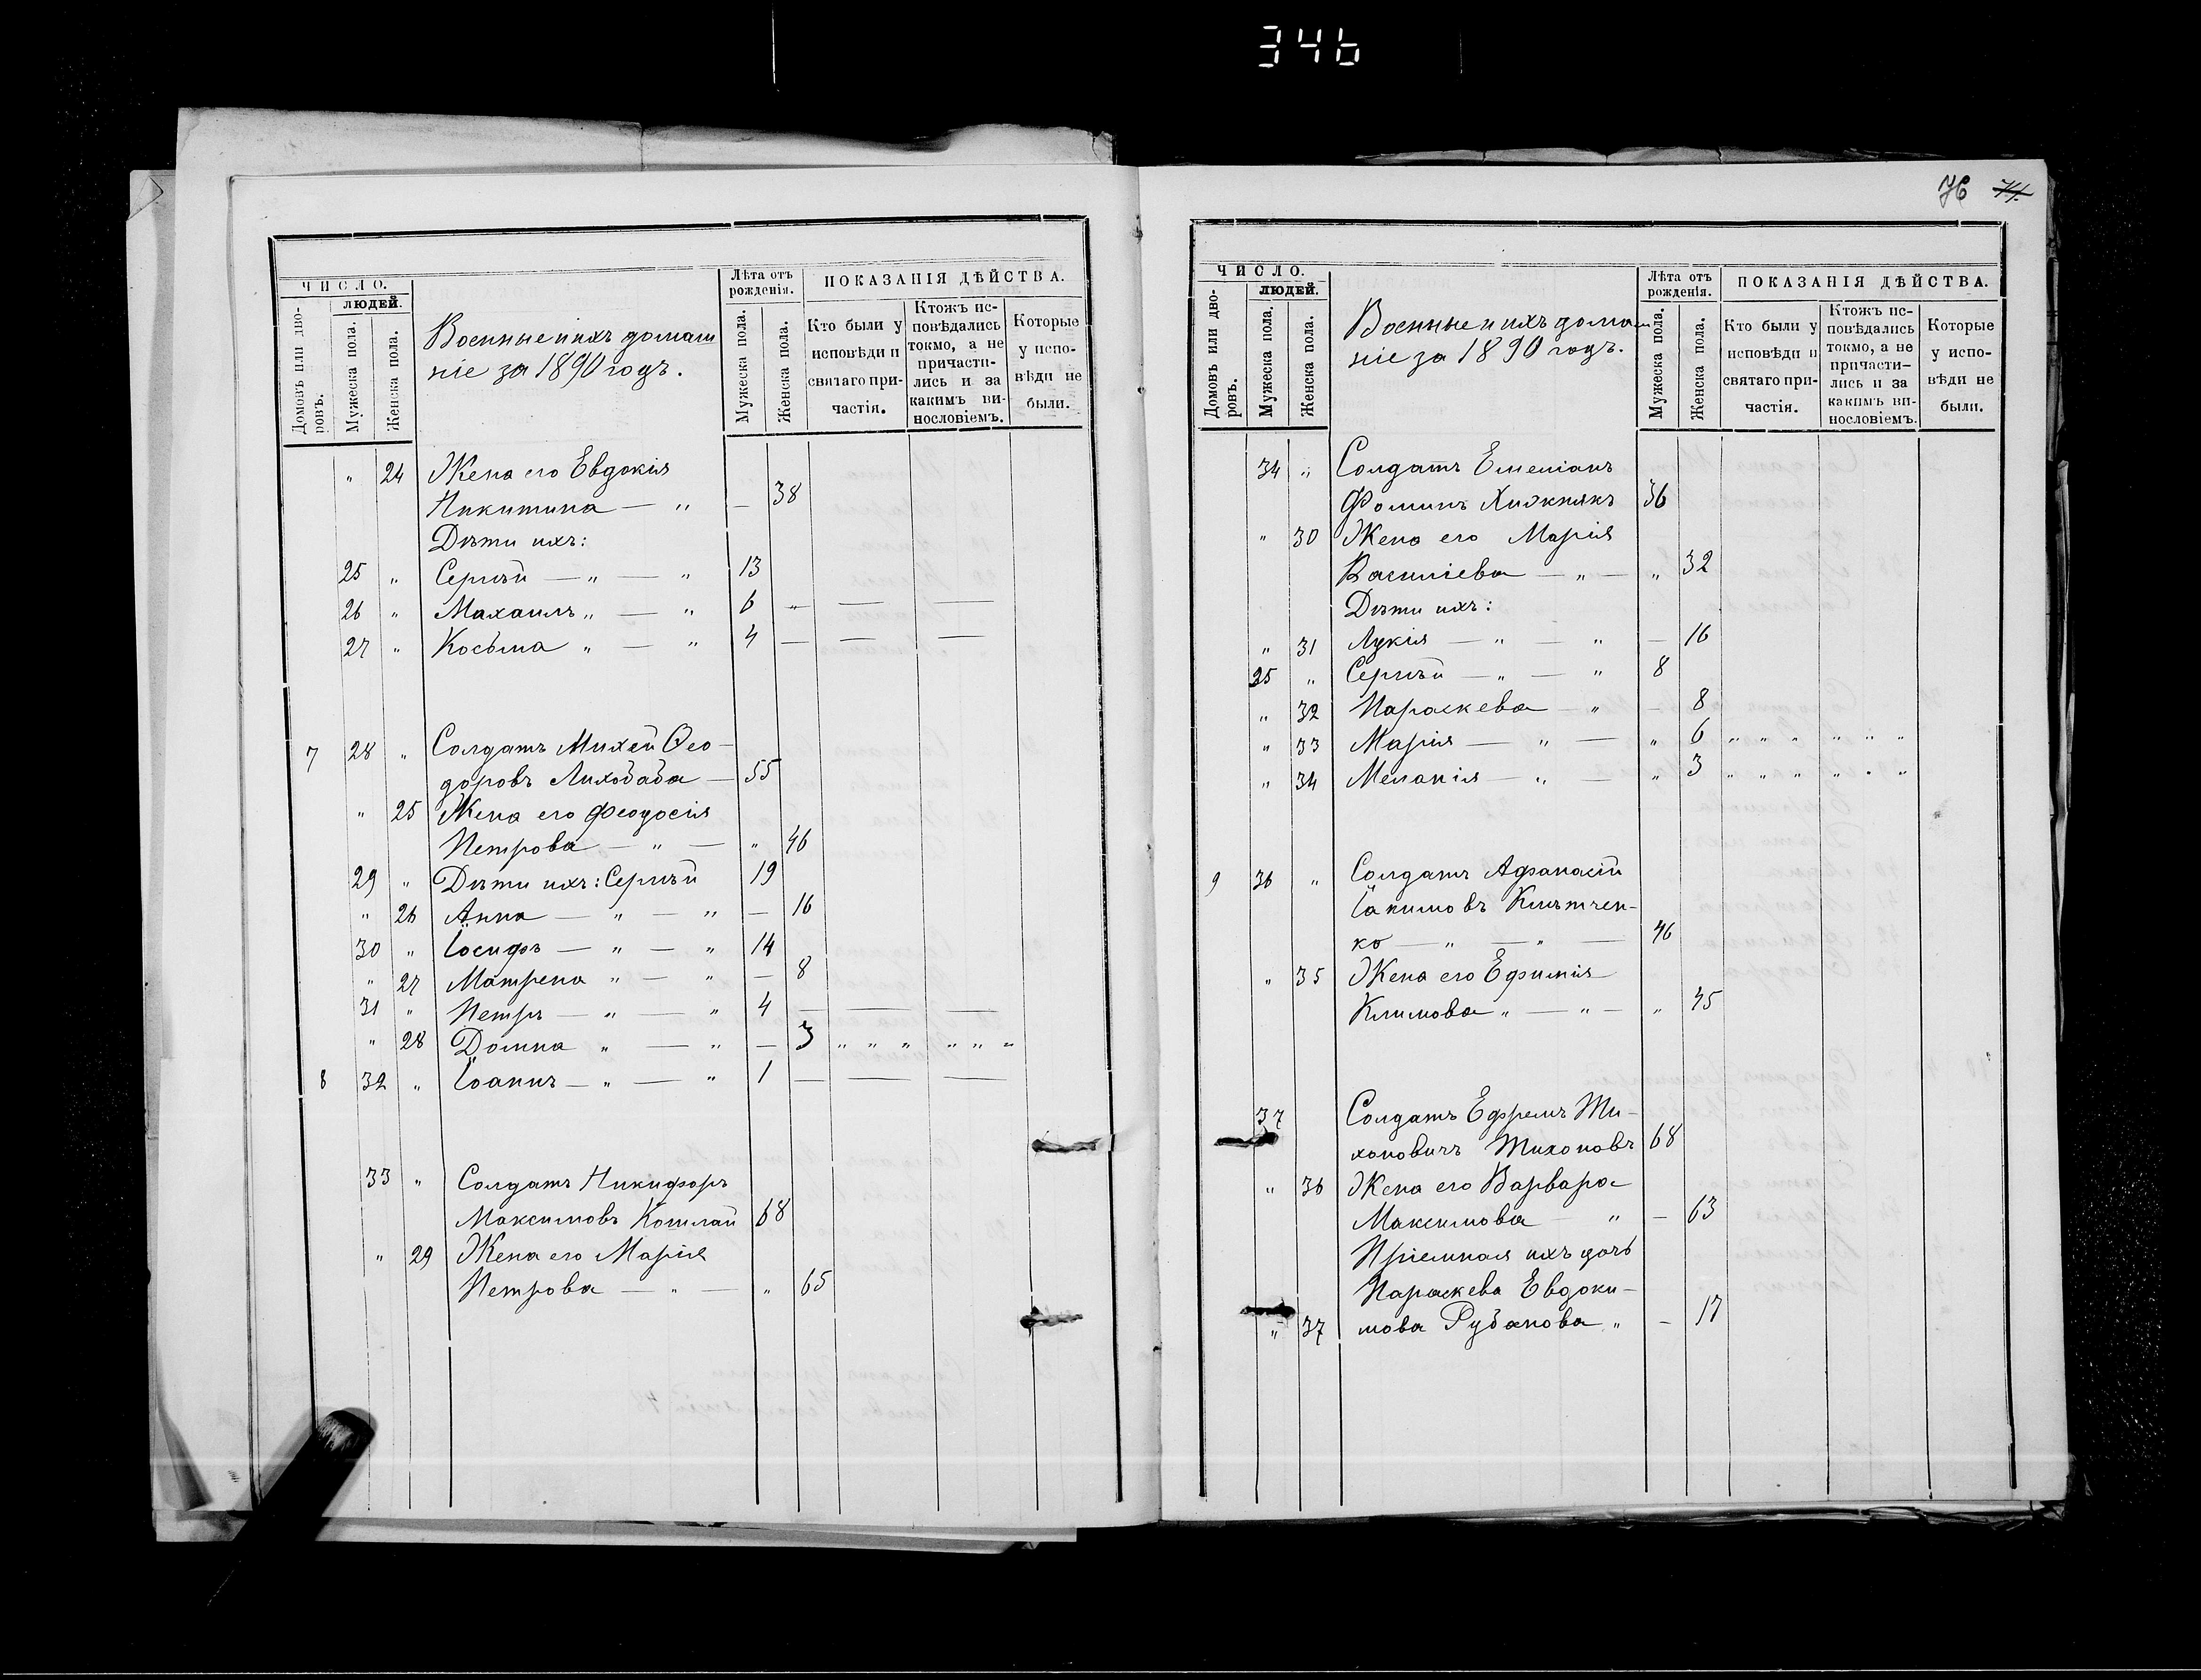 346
76 74.
ЧИСЛО.
ЛЮДЕЙ.
Домовъ или дворовъ.
Мужеска пола.
Женска пола.
Военные и ихъ домаш
ніе за 1890 годъ.
Лѣта отъ рожденія.
Мужеска пола.
Женска пола.
ПОКАЗАНІЯ ДѢЙСТВА.
Кто были у исповѣди и святаго причастія.
Ктожъ исповѣдались токмо, а не причастились и за какимъ винословіемъ.
Которые у исповѣди не были.
" 24 Жена его Евдокія
Никитина — " — 38
Дѣти ихъ:
25 " Сергѣй — " — " 13
26 " Махаилъ " — " 6 " — —
27 " Косьма " — " 4 — — —
7 28 " Солдатъ Михей Ѳео-
доровъ Лиходаба — 55
" 25 Жена его Феодосія
Петрова — " — " 46
29 " Дѣти ихъ: Сергѣй 19
" 26 Анна — " — " — 16
30 " Іосифъ — " — " 14
" 27 Матрена " — " — 8
31 " Петръ — " — " 4 — — —
" 28 Домна " — " — 3 " " " " " "
8 32 " Іоаннъ — " — " 1 — — —
33 " Солдатъ Никифоръ
Максимовъ Кошлай 68
" 29 Жена его Марія
Петрова — " — " 65
ЧИСЛО.
ЛЮДЕЙ.
Домовъ или дворовъ.
Мужеска пола.
Женска пола.
Военные и ихъ домаш
ніе за 1890 годъ.
Лѣта отъ рожденія.
Мужеска пола.
Женска пола.
ПОКАЗАНІЯ ДѢЙСТВА.
Кто были у исповѣди и святаго причастія.
Ктожъ исповѣдались токмо, а не причастились и за какимъ винословіемъ.
Которые у исповѣди не были.
34 " Солдатъ Емеліанъ
Фоминъ Хижнякъ 36
" 30 Жена его Марія
Василіева — " — " 32
Дѣти ихъ:
" 31 Лукія — " — " — 16
35 " Сергѣй — " — " 8
" 32 Параскева — " — 8
" 33 Марія — " — " 6 " " " " " "
" 34 Меланія — " — " 3 " " " " " "
9 36 " Солдатъ Афанасій
Іакимовъ Клѣтчен-
ко — " — " — 46
" 35 Жена его Ефимія
Климова " — " — " 45
37 Солдатъ Ефремъ Ти-
хоновичъ Тихоновъ 68
" 36 Жена его Варвара
Максимова — " — 63
Пріемная ихъ дочь
Параскева Евдоки-
" 37 мова Рубанова " — 17